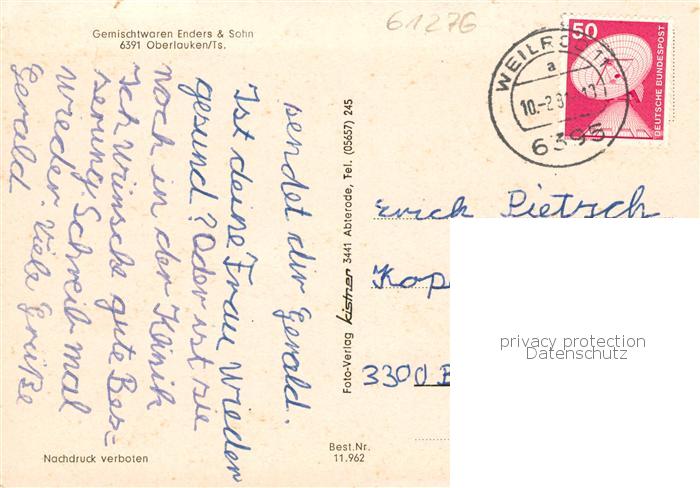 61276
Gemischtwaren Enders & Sohn
6391 Oberlauken/Ts.
sendet dir Gerald.
Ist deine Frau wieder
gesund? Oder ist sie
noch in der Klinik
Ich wünsche gute Bes=
serung. Schreib mal
wieder. Viele Grüße
Gerald
Nachdruck verboten
Best.Nr.
11.962
Foto-Verlag kistner 3441 Abterode, Tel. (05657) 245
WEILROD 1
a
10.-2.8
6395
50
DEUTSCHE BUNDESPOST
Erich Pietsch
Kap
3300 B
privacy protection
Datenschutz